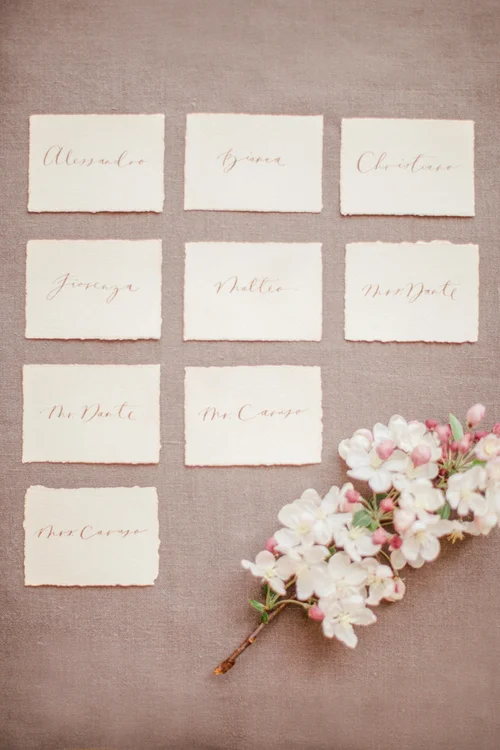 Alessandro
Bianca
Christiano
Fiorenza
Matteo
Mrs Dante
Mr. Dante
Mr. Caruso
Mrs. Caruso